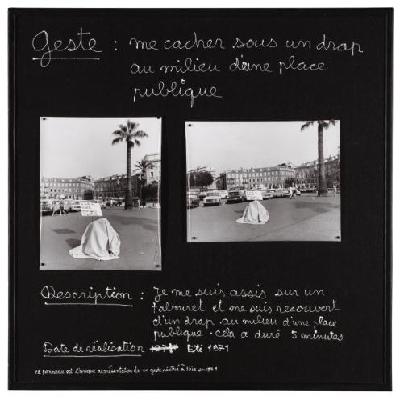 Geste : me cacher sous un drap
au milieu d'une place
publique
Description : Je me suis assis sur un
tabouret et me suis recouvert
d'un drap au milieu d'une place
publique. cela a duré 5 minutes
Date de réalication Eté 1971
ce panneau est l'unique représentation de ce geste réalisé à Nice en